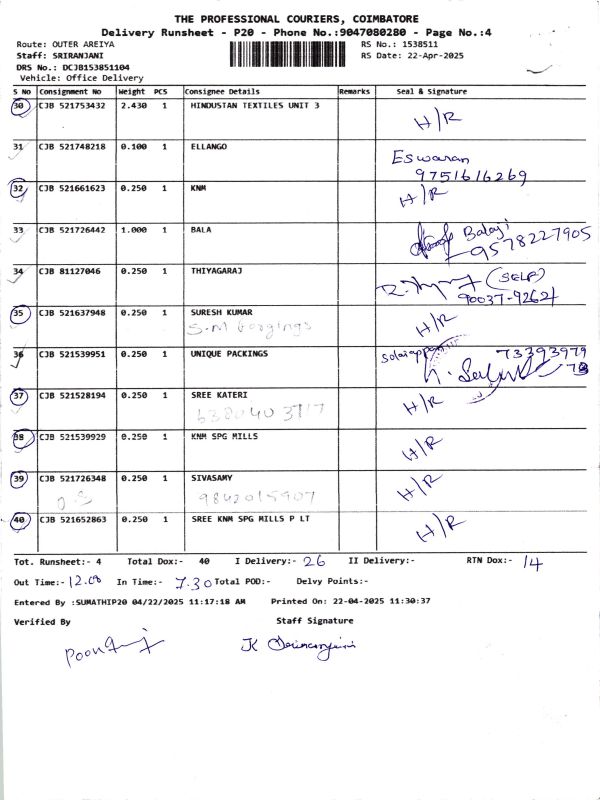 THE PROFESSIONAL COURIERS, COIMBATORE
Delivery Runsheet - P20 - Phone No.:9047080280 - Page No.:4
Route: OUTER AREIYA RS No.: 1538511
Staff: SRIRANJANI RS Date: 22-Apr-2025
DRS No.: DCJB153851104
Vehicle: Office Delivery
S No Consignment No Weight PCS Consignee Details Remarks Seal & Signature
30 CJB 521753432 2.430 1 HINDUSTAN TEXTILES UNIT 3 H/R
31 CJB 521748218 0.100 1 ELLANGO Eswaran
9751616269
32 CJB 521661623 0.250 1 KNM H/R
33 CJB 521726442 1.000 1 BALA Balaji
9578227905
34 CJB 81127046 0.250 1 THIYAGARAJ (SELF)
90037-92621
35 CJB 521637948 0.250 1 SURESH KUMAR H/R
S.M
36 CJB 521539951 0.250 1 UNIQUE PACKINGS Solaiappan 73393979
73
37 CJB 521528194 0.250 1 SREE KATERI H/R
6380403717
38 CJB 521539929 0.250 1 KNM SPG MILLS H/R
39 CJB 521726348 0.250 1 SIVASAMY H/R
9842015907
40 CJB 521652863 0.250 1 SREE KNM SPG MILLS P LT H/R
Tot. Runsheet:- 4 Total Dox:- 40 I Delivery:- 26 II Delivery:- RTN Dox:- 14
Out Time:- 12.00 In Time:- 7.30 Total POD:- Delvy Points:-
Entered By :SUMATHIP20 04/22/2025 11:17:18 AM Printed On: 22-04-2025 11:30:37
Verified By Staff Signature